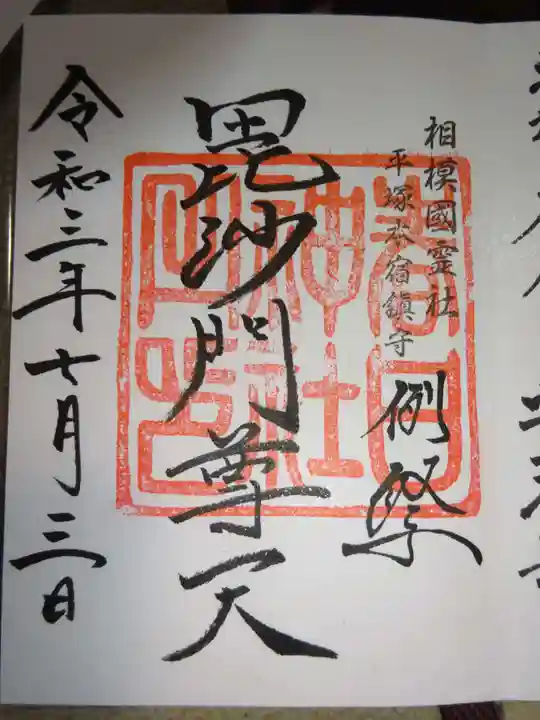 相模國霊社
平塚本宿鎮守
例祭
毘沙門尊天
令和三年七月三日
春日
神社